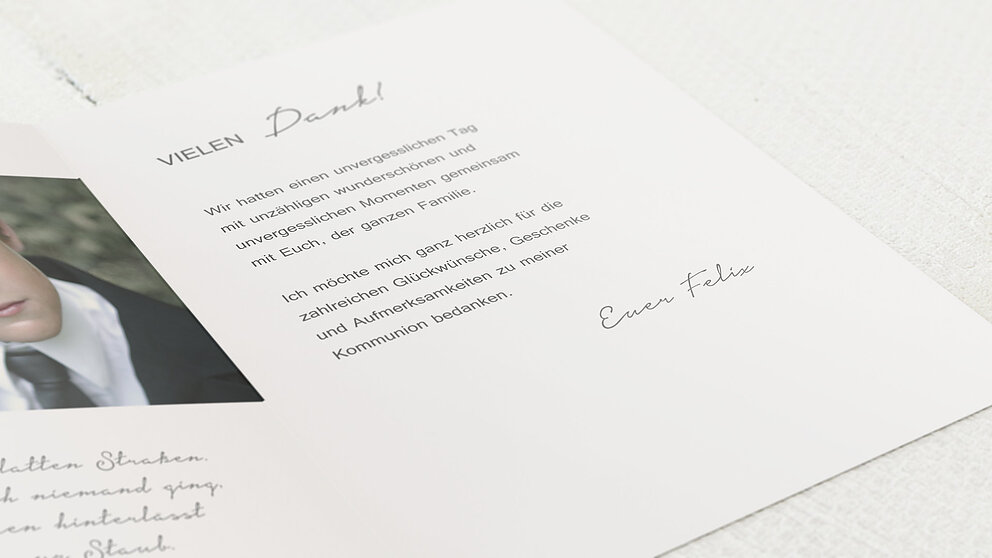 VIELEN Dank!
Wir hatten einen unvergesslichen Tag
mit unzähligen wunderschönen und
unvergesslichen Momenten gemeinsam
mit Euch, der ganzen Familie.
Ich möchte mich ganz herzlich für die
zahlreichen Glückwünsche, Geschenke
und Aufmerksamkeiten zu meiner
Kommunion bedanken.
Euer Felix
Straßen.
niemand ging.
hinterlässt
Staub.